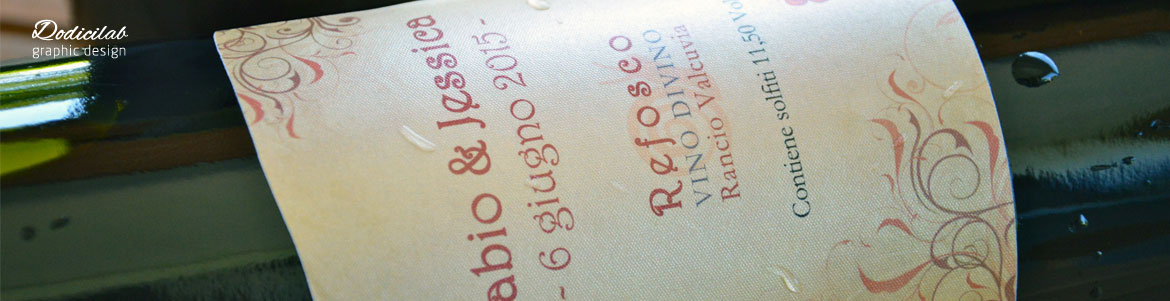 Dodicilab
graphic design
abio & Jessica
- 6 giugno 2015-
Refosco
VINO DIVINO
Rancio Valcuvia
Contiene solfiti 11,50 Vol